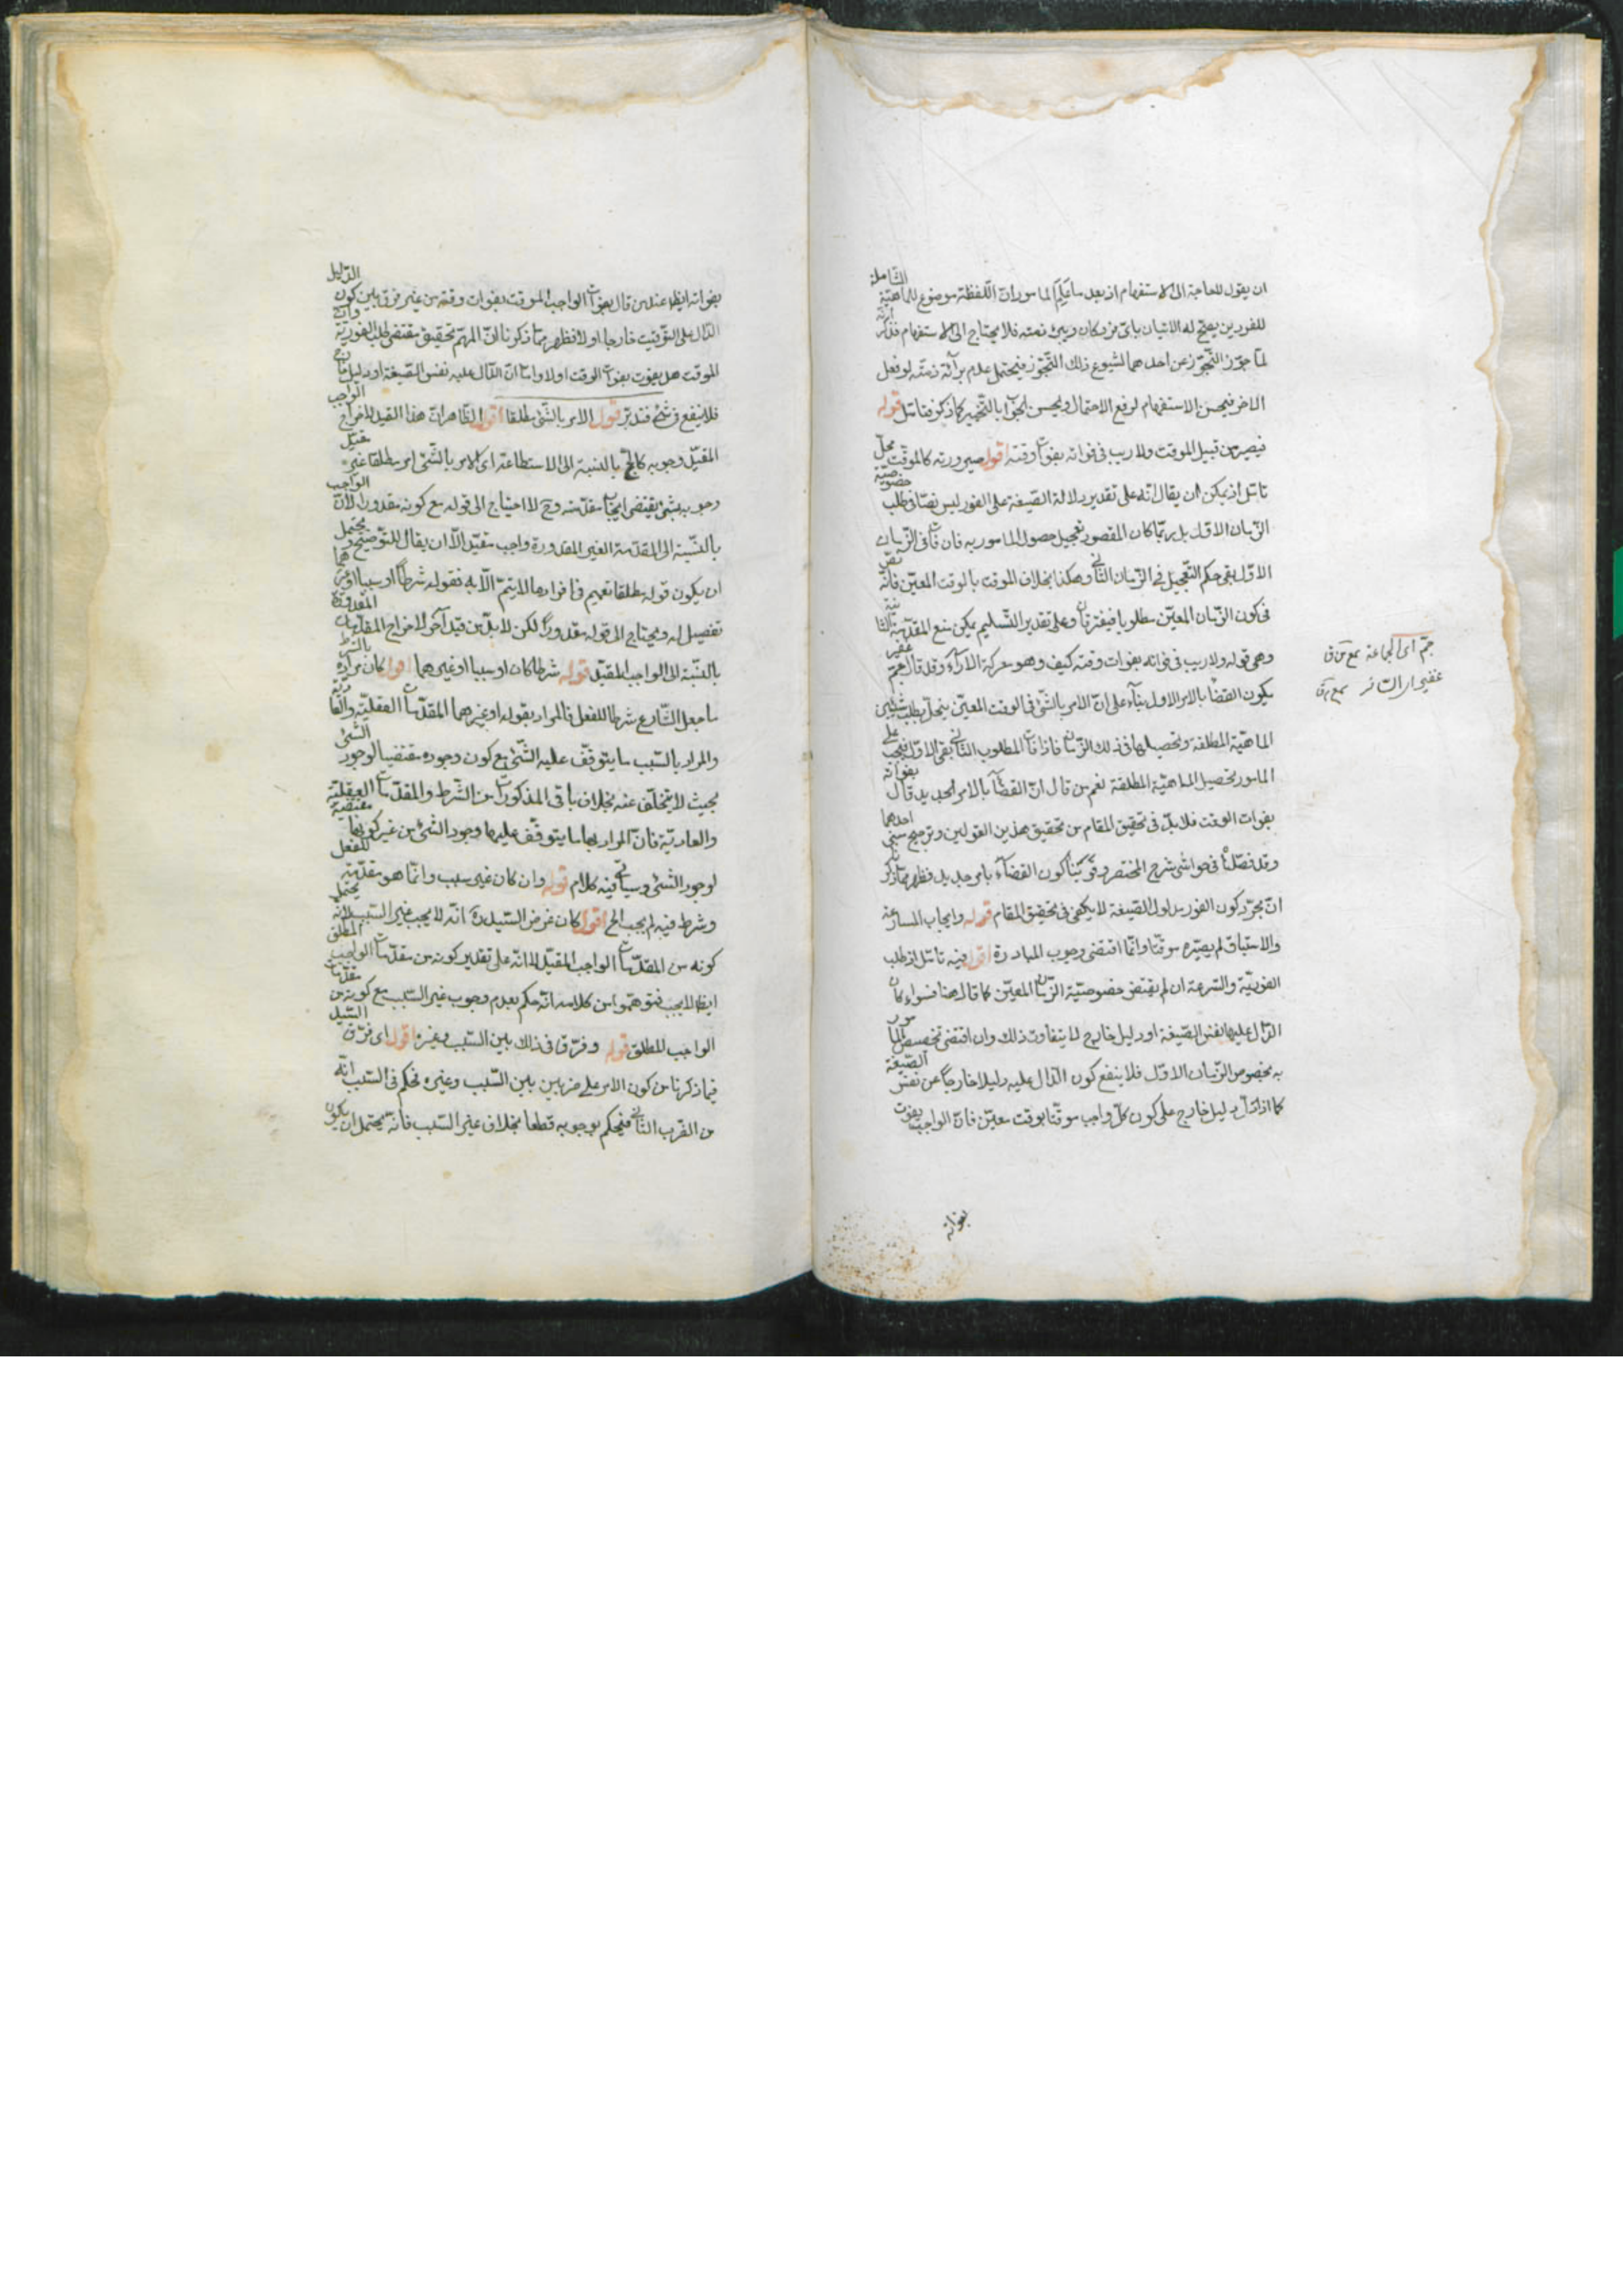 ان يقول لا حاجة الى الاستفهام اذ بعد ما يعلم المامور ان اللفظة موضوع للماهية الشاملة
للفردين يصح له الاتيان باى فرد كان ويبرئ ذمته فلا يحتاج الى الاستفهام
لما جوز التجوز عن احدهما لشيوع ذلك التجوز فيحتمل عدم برآءة ذمته لو فعل
الاخر فيحسن الاستفهام لرفع الاحتمال ويحسن الجواب بالتخيير كما ذكر فتامل قوله
فيصير من قبيل الموقت ولا ريب فى فواته بفوات وقته اقول صيرورته كالموقت محل
تامل اذ يمكن ان يقال انه على تقدير دلالة الصيغة على الفور ليس نصا فى طلب خصوصية
الزمان الاول بل ربما كان المقصور تعجيل حصول المامور به فان فات فى الزمان
الاول بقى حكم التعجيل فى الزمان الثانى وهكذا بخلاف الموقت بالوقت المعين فانه
فى كون الزمان المعين مطلوبا فيفترقان وعلى تقدير التسليم يمكن منع المقدمة الثانية
وهى قوله ولا ريب فى فواته بفوات وقته كيف وهو معركة الآراء وقد قال جم غفير
يكون القضاء بالامر الاول بناء على ان الامر بالشئ فى الوقت المعين ينحل بطلب شيئين
الماهية المطلقة وتحصيلها فى ذلك الزمان فاذا فات المطلوب الثانى بقى الاول فيجب على
المامور تحصيل الماهية المطلقة نعم من قال ان القضاء بالامر الجديد قال بفواته
بفوات الوقت فلا بد فى تحقيق المقام من تحقيق هذين القولين وترجيح احدهما
وقد فصلنا فى حواشى شرح المختصر وقوينا كون القضاء بامر جديد فظهر مما ذكر
ان مجرد كون الفور مدلول الصيغة لا يكفى فى تحقيق المقام قوله وايجاب المسارعة
والاستباق لم يصيره موقتا وانما اقتضى وجوب المبادرة اقول فيه تامل اذ طلب
الفورية والسرعة ان لم يقتض خصوصية الزمان المعين كما قال هنا فسواء كان
الدال عليها نفس الصيغة او دليل خارج لا يتفاوت ذلك وان اقتضى تخصيص المامور
به بخصوص الزمان الاول فلا ينفع كون الدال عليه دليلا خارجا عن نفس الصيغة
كما اذا دل دليل خارج على كون كل واجب موقتا بوقت معين فان الواجب يفوت
جم اى الجماعة
غفير اى الساتر
بفواته
بفواته ايضا عند من قال بفوات الواجب الموقت بفوات وقته من غير فرق بين كون الدليل
الدال على التوقيت خارجا او لا فظهر مما ذكرنا ان المهم تحقيق مقتضى طلب الفورية وان
الموقت هل يفوت بفوات الوقت او لا واما ان الدال عليه نفس الصيغة او دليل خارج
فلا ينفع فى شئ فتدبر قوله الامر بالشئ مطلقا اقول الظاهر ان هذا القيد لاخراج الواجب
المقيد وجوبه كالحج بالنسبة الى الاستطاعة اى الامر بالشئ امر مطلقا غير مقيد
وجوبه بشئ يقتضى ايجاب مقدمته وح لا احتياج الى قوله مع كونه مقدورا لان الواجب
بالنسبة الى المقدمة الغير المقدورة واجب مقيد الا ان يقال للتوضيح ويحتمل
ان يكون قوله مطلقا تعميم فى افراد ما لا يتم الا به فقوله شرطا او سببا او غيرهما
تفصيل له ويحتاج الى قوله مقدورا لكن لا بد من قيد آخر لاخراج المقدمات المقدورة
بالنسبة الى الواجب المقيد قوله شرطا كان او سببا او غيرهما اقول كان مراده بالشرط
ما جعل الشارع شرطا للفعل فالمراد بقوله او غيرهما المقدمات العقلية والعادية
والمراد بالسبب ما يتوقف عليه الشئ مع كون وجوده مقتضيا لوجود الشئ
بحيث لا يتخلف عنه بخلاف باقى المذكورات من الشرط والمقدمات العقلية
والعادية فان المراد بها ما يتوقف عليها وجود الشئ من غير كونها مقتضية
لوجود الشئ وسياتى فيه كلام قوله وان كان غير سبب وانما هو مقدمة للفعل
وشرط فيه لم يجب الخ اقول كان غرض السيد ره انه لا يجب غير السبب لانه يحتمل
كونه من المقدمات الواجب المقيد لا انه على تقدير كونه من مقدمات الواجب المطلق
ايضا لا يجب فتوهموا من كلامه انه حكم بعدم وجوب غير السبب مع كونه من مقدمات
الواجب المطلق قوله وفرق فى ذلك بين السبب وغيره اقول اى فرق السيد
فيما ذكرنا من كون الامر على ضربين بين السبب وغيره فحكم فى السبب انه
من الضرب الثانى فيحكم بوجوبه قطعا بخلاف غير السبب فانه يحتمل ان يكون